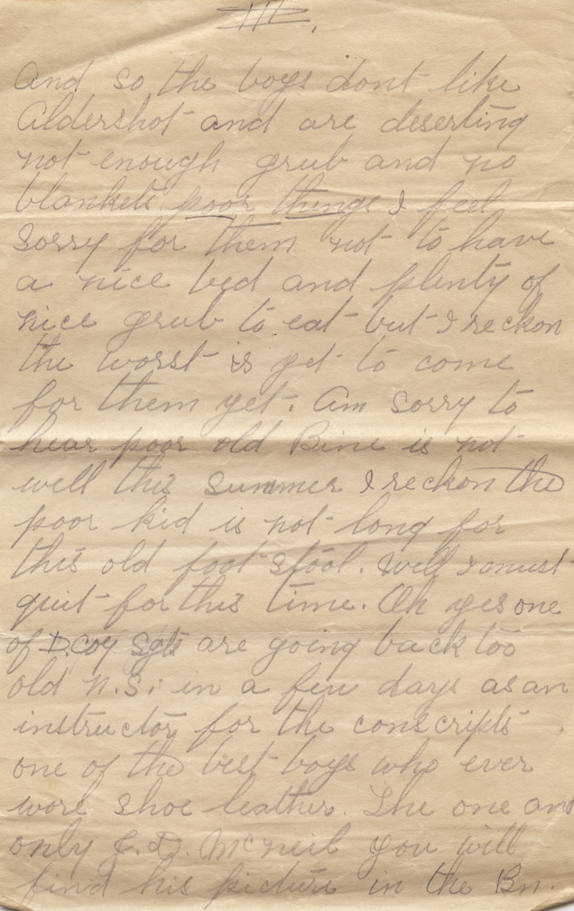 III.
And so the boys dont like
Aldershot and are deserting
not enough grub and no
blankets poor things I feel
sorry for them not to have
a nice bed and plenty of
nice grub to eat but I reckon
the worst is yet to come
for them yet. Am sorry to
hear poor old Bine is not
well this summer I reckon the
poor kid is not long for
this old foot stool. Well I must
quit for this time. Oh yes one
of D. Coy Sgts are going back too
old N.S. in a few days as an
instructor for the conscripts
one of the best boys who ever
wore shoe leather. The one and
only J. D. McNeil you will
find his picture in the Bn.